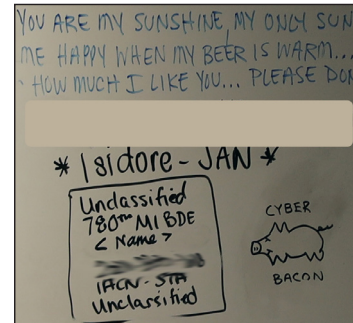 YOU ARE MY SUNSHINE, MY ONLY SUN
ME HAPPY WHEN MY BEER IS WARM...
HOW MUCH I LIKE YOU... PLEASE DON
* Isidore - JAN *
Unclassified
780TH MI BDE
< Name >
IACN-STA
Unclassified
CYBER
BACON